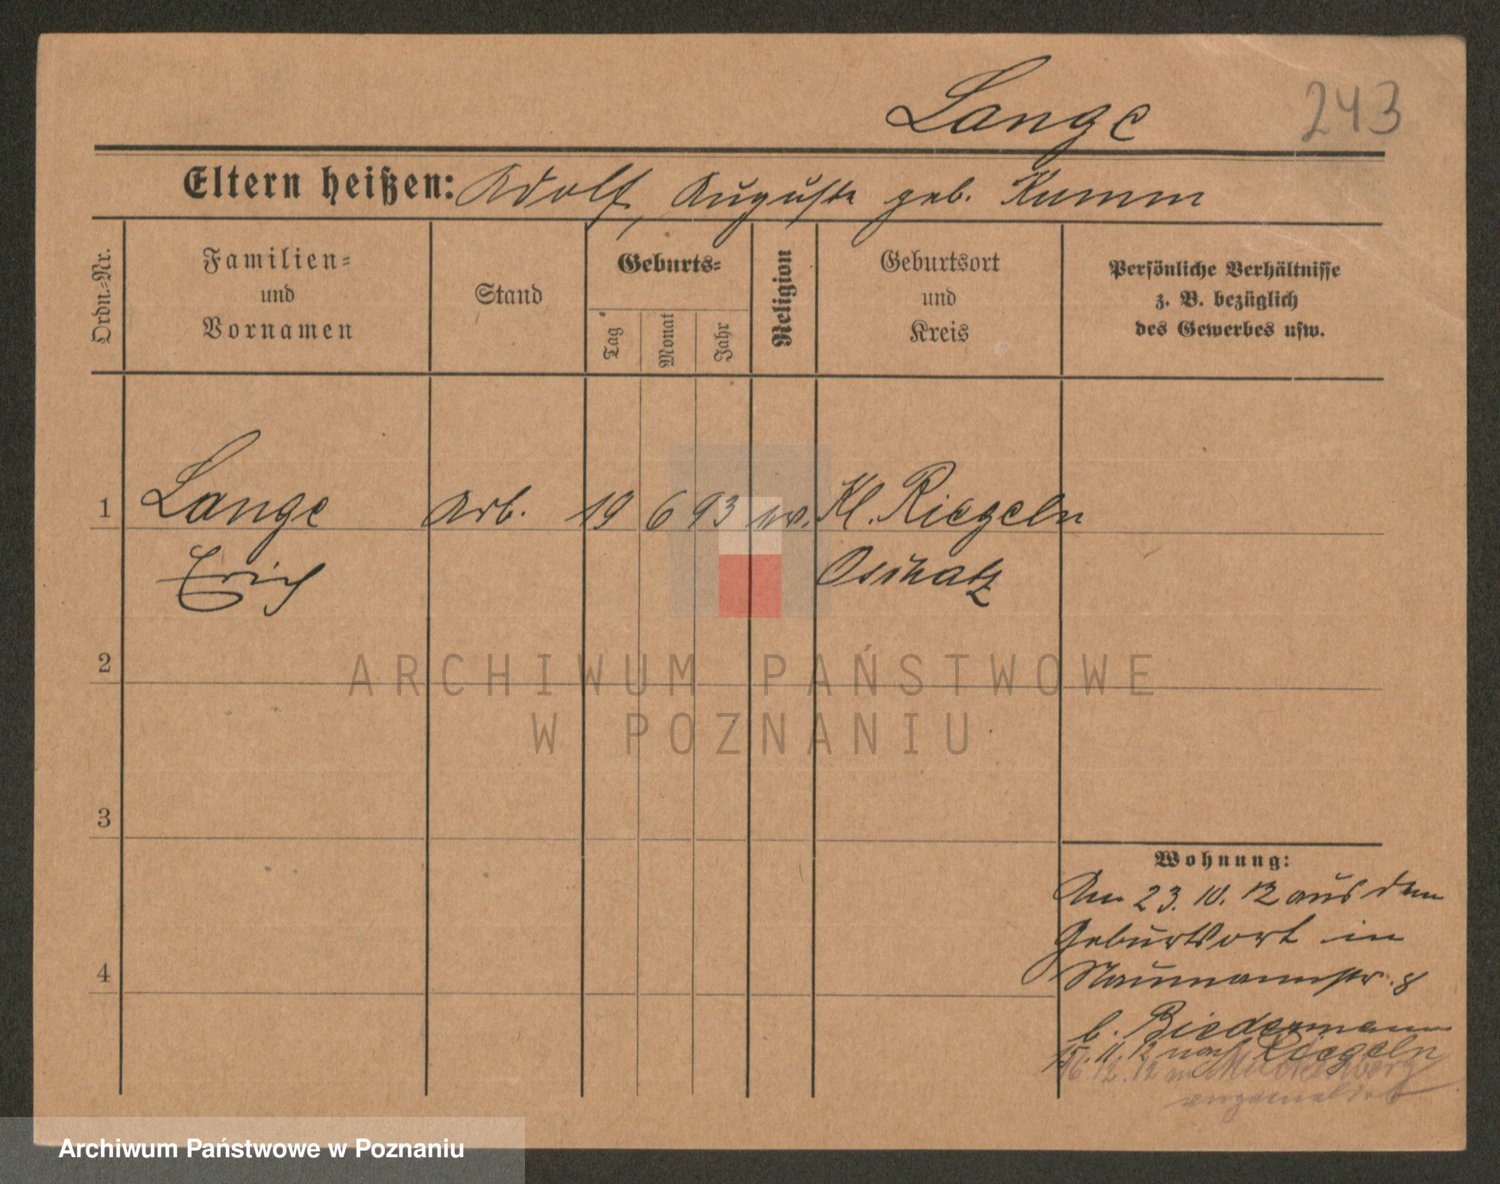 Lange 243
Eltern heißen: Adolf, Auguste geb. Kumm
Ordn.-Nr.
Familien-
und
Vornamen
Stand
Geburts-
Tag
Monat
Jahr
Religion
Geburtsort
und
Kreis
Persönliche Verhältnisse
z. B. bezüglich
des Gewerbes usw.
1 Lange Arb. 19 6 93 ev. Kl. Riegeln
Erich
2
3
4
Wohnung:
Am 23. 10. 12 aus dem
Geburtsort in
Naumannstr. 8
b. Biedermann
15. 11. 12 nach Riegeln
16 12. 12 in
angemeldet
ARCHIWUM PAŃSTWOWE
W POZNANIU
Archiwum Państwowe w Poznaniu